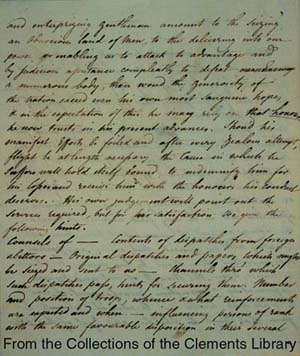 and enterprizing Gentleman amount to the seizing
an obnoxious band of Men, to the delivering into our
power or enabling us to attack to advantage and
by Judicious assistance compleatly to defeat
a numerous body, then would the generosity of
the nation exceed even his own most sanguine hopes,
in the expectation of this he may rely on that honour
he now trusts in his present advances. Should his
manifest Efforts be foiled and after every Zealous attempt,
flight be at length necessary, the Cause in which he
suffers will hold itself bound to indemnify him for
his losses and receive him with the honours his conduct
deserves. His own judgement will point out the
Services required, but for his satisfaction we give the
following hints.
Counsels of — Contents of dispatches from foreign
abettors — Original dispatches and papers which might
be seized and sent to us — Channels thro' which
such dispatches pass, hints for securing them. Number
and position of troops, whence & what reinforcements
are expected and when — influencing persons of rank
with the same favourable disposition in their several
From the Collections of the Clements Library